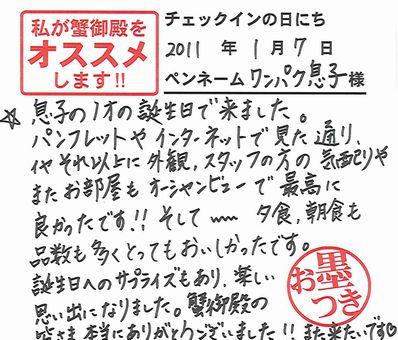 私が蟹御殿を
オススメ
します!!
チェックインの日にち
2011 年 1月 7 日
ペンネーム ワンパク息子 様
☆ 息子の1才の誕生日で来ました。
パンフレットや インターネットで見た通り、
イヤそれ以上に外観、スタッフの方の 気配りや
またお部屋も オーシャンビューで 最高に
良かったです!! そして〰 夕食、朝食も
品数も多くとってもおいしかったです。
誕生日へのサプライズもあり、楽しい
思い出になりました。蟹御殿の
皆さま 本当にありがとうございました!! また来たいです♡
お墨
つき